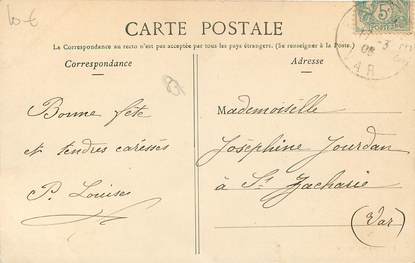 10 €
CARTE POSTALE
La Correspondance au recto n'est pas acceptée par tous les pays étrangers. (Se renseigner à la Poste.)
Correspondance
Adresse
Bonne fête
et tendres caresses
P. Louise
Mademoiselle
Joséphine Jourdan
à St Zacharie
(Var)
5
VAR